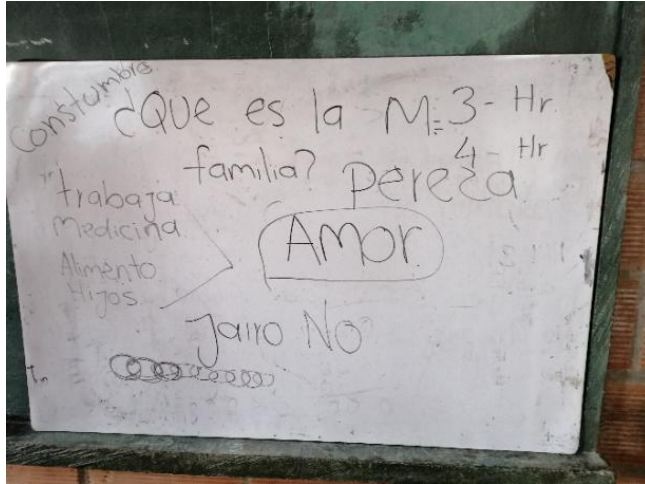 Constumbre
¿QUe es la M=3-Hr
4-Hr
familia? pereza
trabaja
Medicina
Alimento
Hijos
AMOR
Jairo NO